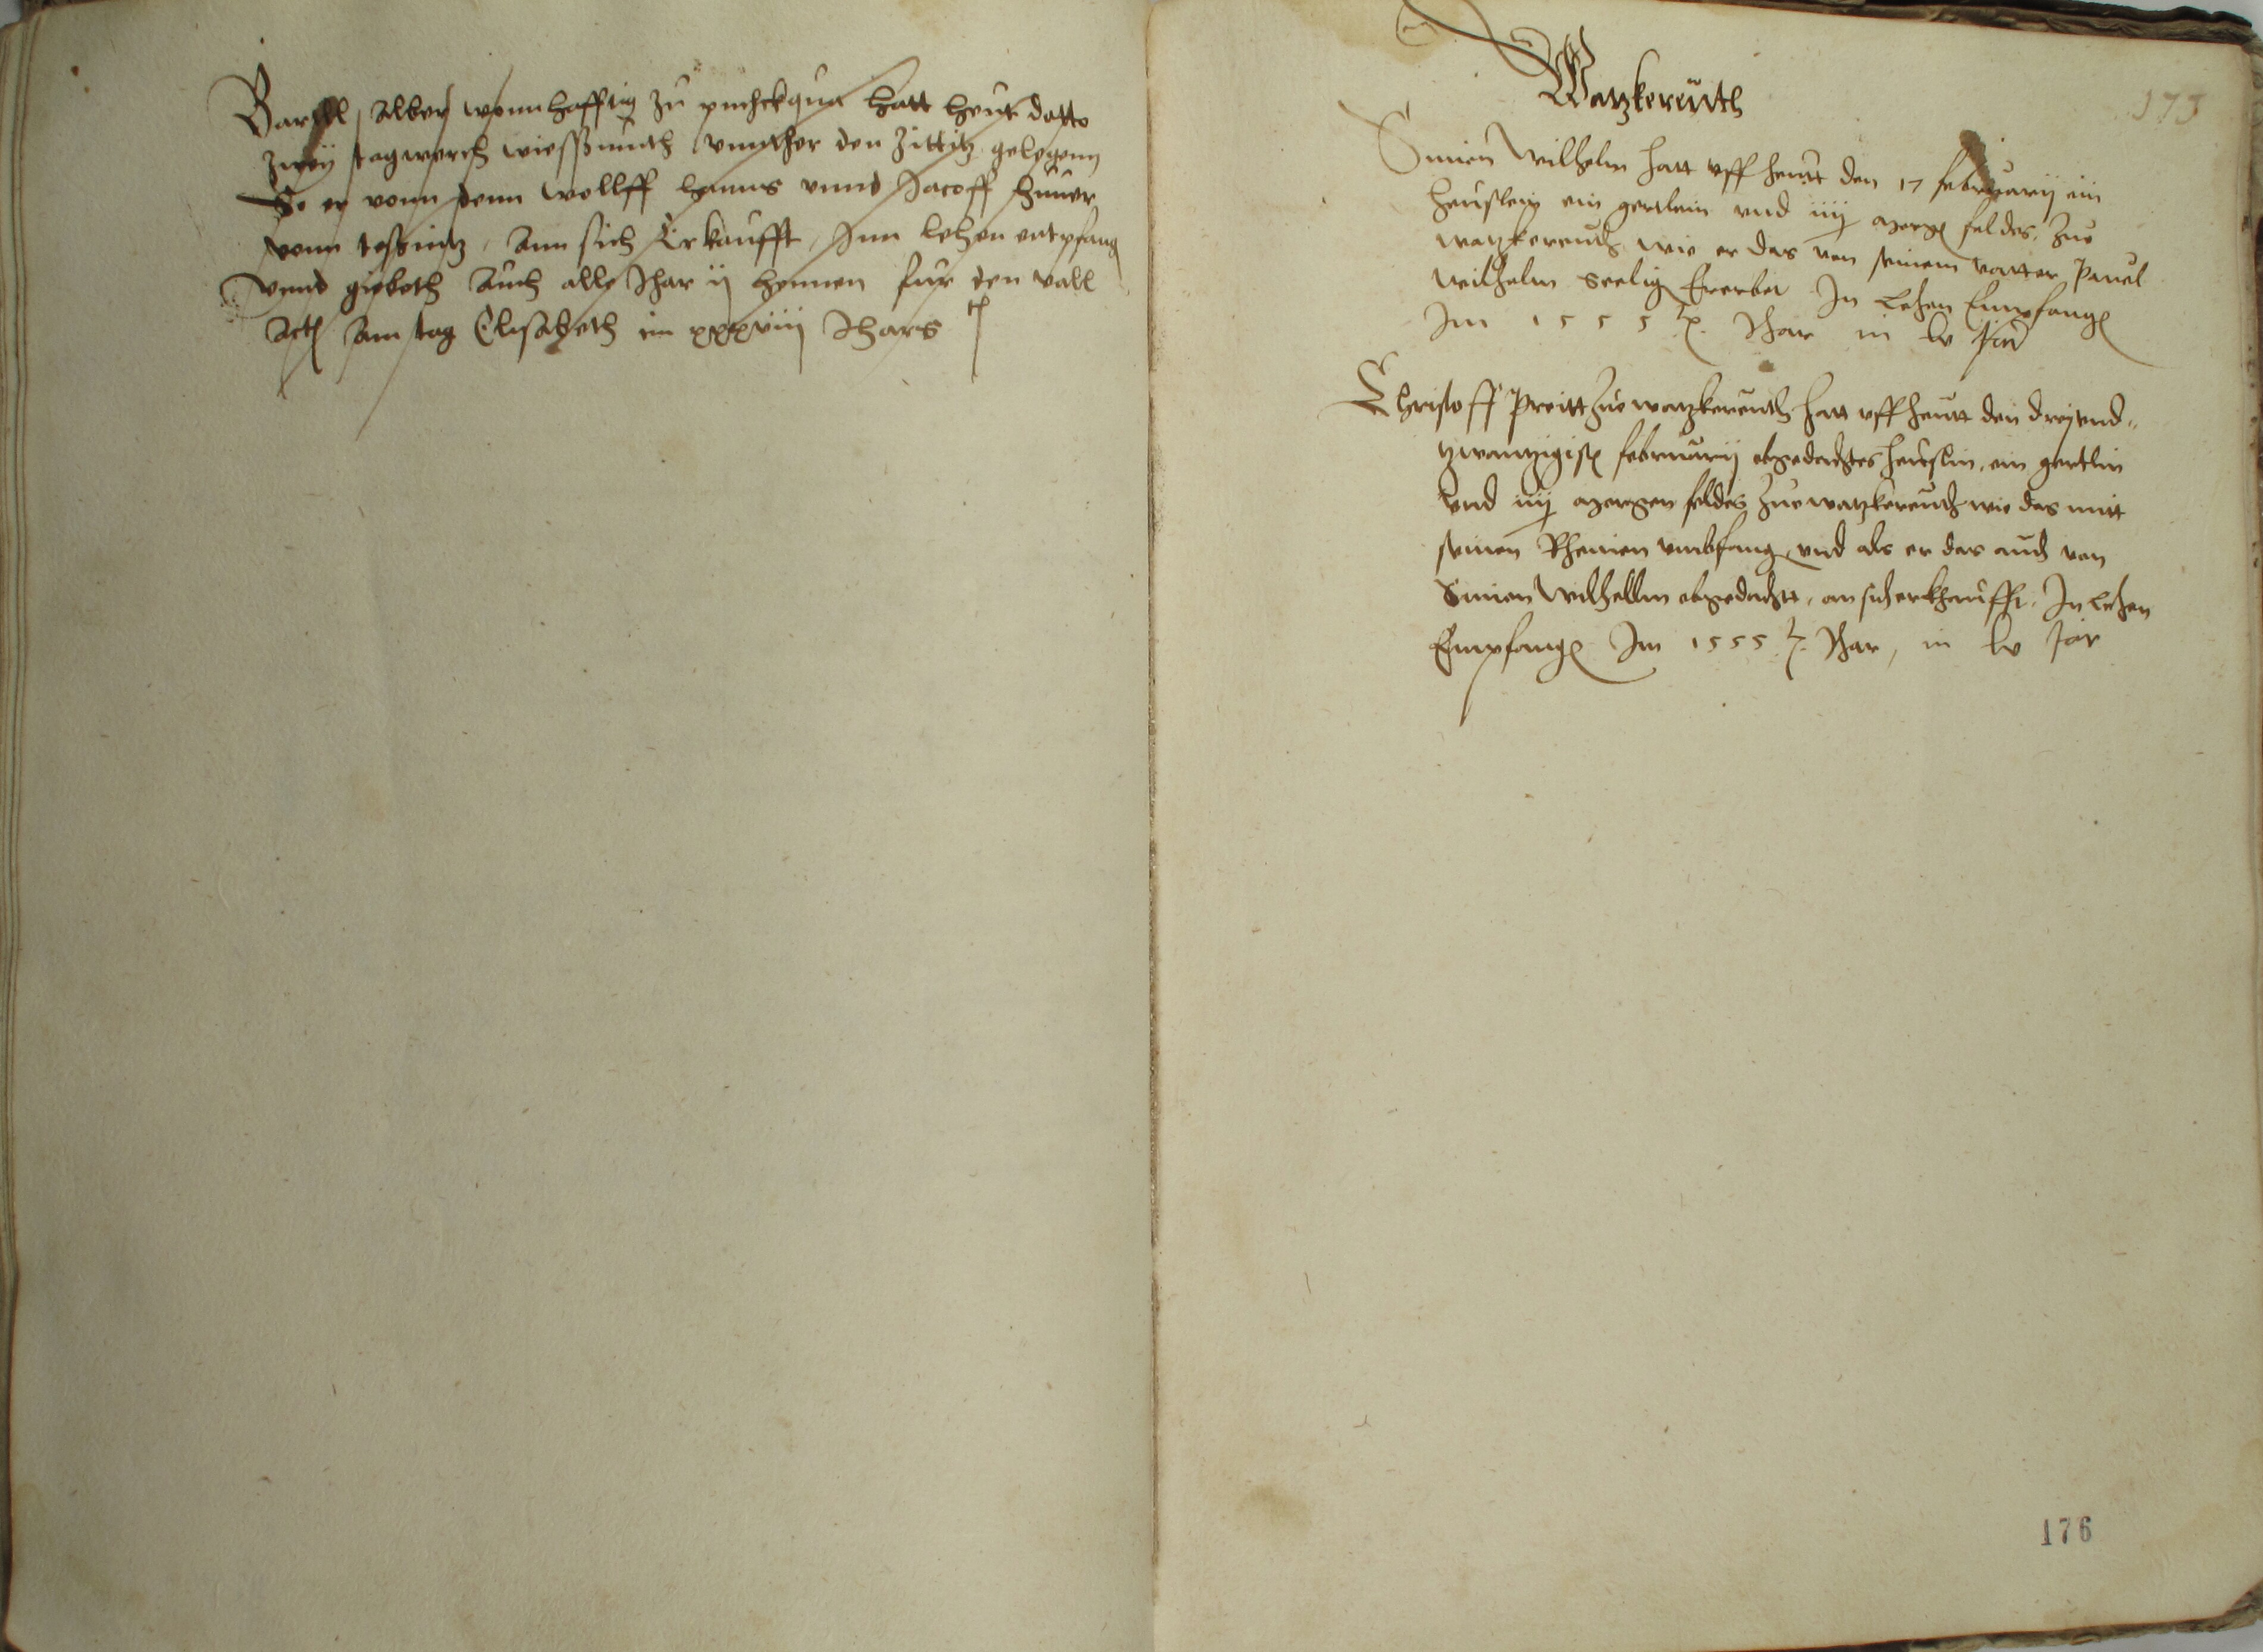 Bartell Alber wonnhafftig zu hatt heut datto
zweÿ tagwerch wießmuth vnnther den Zittitz gelegenn
So er vonn denn wollff hanns vnnd Jacoff
vonn teßnitz, Ann sich Erkaufft, Inn lehen entpfang
vnnd giebeth Auch alle Jhar ij hennen fur den vall
Act Am tag Elisabeth im xxxviij Jhars
Watzkereuth
173
Simen Wilhelm hatt vff heutt den 17 februarij ein
heuslein ein gertlein vnd iiij morg feldes, zue
watzkereuth wie er das von seinem vatter Pauel
wilhelm seelig Ererbet In Lehen Empfang
Im 1555 Jhar in lv Jar
Christoff Preitt zue watzkereuth hatt vff heutt den dreÿvnd-
tzwantzigist februarij obgedachtes heuslin, ein gertlin
vnd iiij morgen feldes zue watzkereuth wie das mitt
seinen Rheinen vmbfang, vnd als er das auch von
Simen Wilhellm obgedachtt, an sich erkhaufft, In Lehen
Empfang Im 1555 Jhar, in lv Jar
176